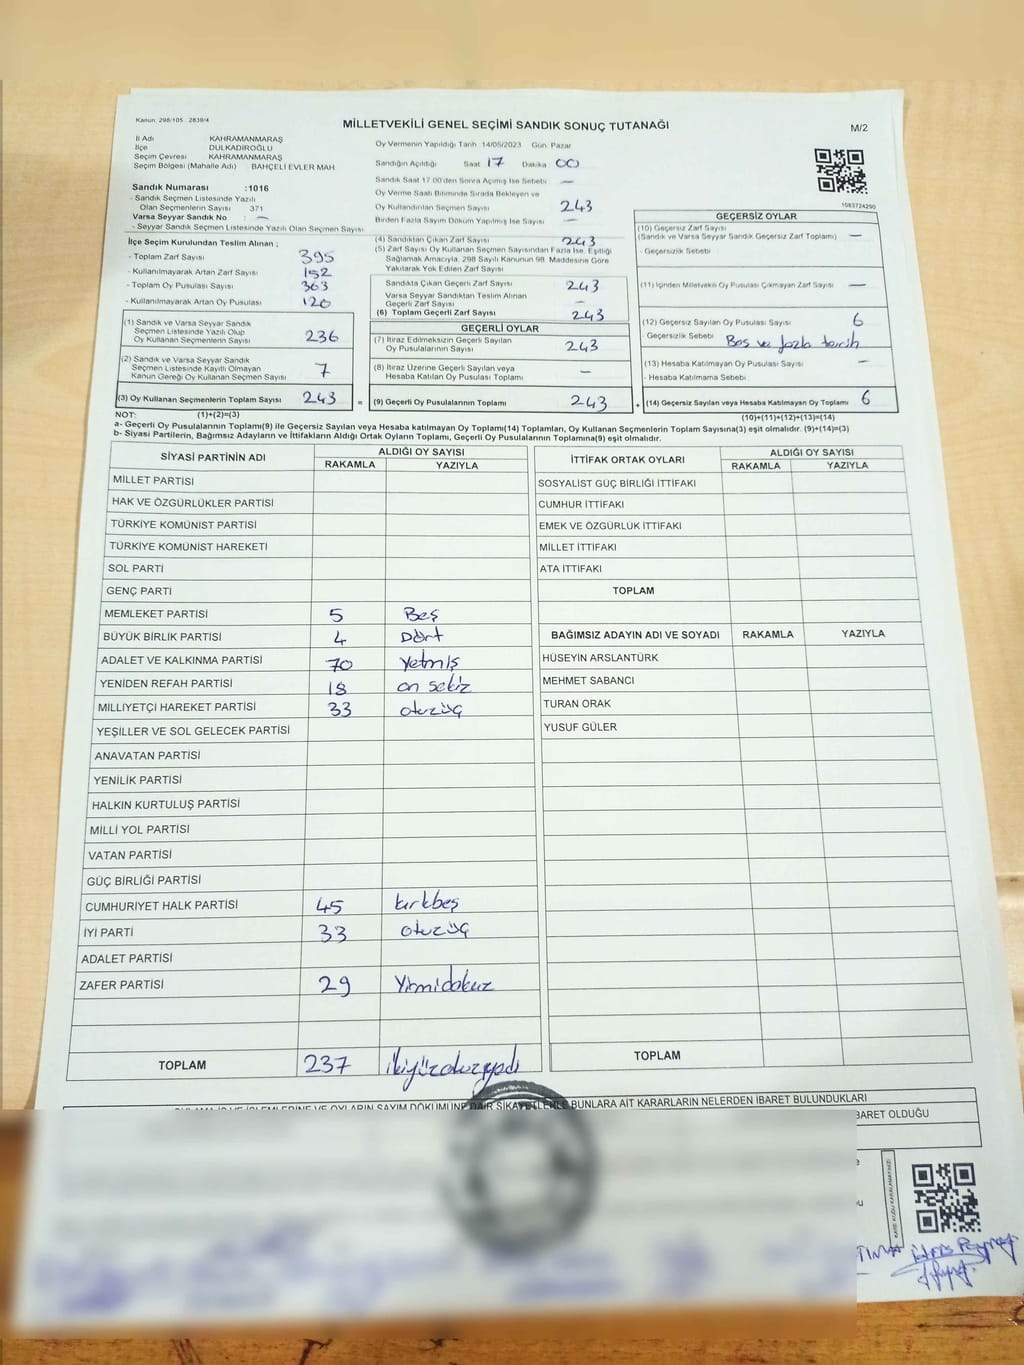 Kanun: 298/105 . 2839/4
MİLLETVEKİLİ GENEL SEÇİMİ SANDIK SONUÇ TUTANAĞI
M/2
İl Adı KAHRAMANMARAŞ
İlçe DULKADİROĞLU
Seçim Çevresi KAHRAMANMARAŞ
Seçim Bölgesi (Mahalle Adı) BAHÇELİ EVLER MAH.
Sandık Numarası :1016
- Sandık Seçmen Listesinde Yazılı
Olan Seçmenlerin Sayısı 371
Varsa Seyyar Sandık No : —
- Seyyar Sandık Seçmen Listesinde Yazılı Olan Seçmen Sayısı
İlçe Seçim Kurulundan Teslim Alınan ;
- Toplam Zarf Sayısı 395
- Kullanılmayarak Artan Zarf Sayısı 152
- Toplam Oy Pusulası Sayısı 363
- Kullanılmayarak Artan Oy Pusulası 120
(1) Sandık ve Varsa Seyyar Sandık
Seçmen Listesinde Yazılı Olup
Oy Kullanan Seçmenlerin Sayısı 236
(2) Sandık ve Varsa Seyyar Sandık
Seçmen Listesinde Kayıtlı Olmayan
Kanun Gereği Oy Kullanan Seçmen Sayısı 7
(3) Oy Kullanan Seçmenlerin Toplam Sayısı 243 =
Oy Vermenin Yapıldığı Tarih 14/05/2023 Gün Pazar
Sandığın Açıldığı Saat 17 Dakika 00
Sandık Saat 17:00'den Sonra Açılmış İse Sebebi —
Oy Verme Saati Bitiminde Sırada Bekleyen ve
Oy Kullandırılan Seçmen Sayısı 243
Birden Fazla Sayım Döküm Yapılmış İse Sayısı —
(4) Sandıktan Çıkan Zarf Sayısı 243
(5) Zarf Sayısı Oy Kullanan Seçmen Sayısından Fazla İse, Eşitliği
Sağlamak Amacıyla, 298 Sayılı Kanunun 98. Maddesine Göre
Yakılarak Yok Edilen Zarf Sayısı
Sandıkta Çıkan Geçerli Zarf Sayısı 243
Varsa Seyyar Sandıktan Teslim Alınan
Geçerli Zarf Sayısı —
(6) Toplam Geçerli Zarf Sayısı 243
GEÇERLİ OYLAR
(7) İtiraz Edilmeksizin Geçerli Sayılan
Oy Pusulalarının Sayısı 243
(8) İtiraz Üzerine Geçerli Sayılan veya
Hesaba Katılan Oy Pusulası Toplamı —
(9) Geçerli Oy Pusulalarının Toplamı 243 +
1083724290
GEÇERSİZ OYLAR
(10) Geçersiz Zarf Sayısı
(Sandık ve Varsa Seyyar Sandık Geçersiz Zarf Toplamı) —
- Geçersizlik Sebebi
(11) İçinden Milletvekili Oy Pusulası Çıkmayan Zarf Sayısı —
(12) Geçersiz Sayılan Oy Pusulası Sayısı 6
- Geçersizlik Sebebi Boş ve fazla tercih
(13) Hesaba Katılmayan Oy Pusulası Sayısı —
- Hesaba Katılmama Sebebi
(14) Geçersiz Sayılan veya Hesaba Katılmayan Oy Toplamı 6
NOT: (1)+(2)=(3) (10)+(11)+(12)+(13)=(14)
a- Geçerli Oy Pusulalarının Toplamı(9) ile Geçersiz Sayılan veya Hesaba katılmayan Oy Toplamı(14) Toplamları, Oy Kullanan Seçmenlerin Toplam Sayısına(3) eşit olmalıdır. (9)+(14)=(3)
b- Siyasi Partilerin, Bağımsız Adayların ve İttifakların Aldığı Ortak Oyların Toplamı, Geçerli Oy Pusulalarının Toplamına(9) eşit olmalıdır.
SİYASİ PARTİNİN ADI ALDIĞI OY SAYISI
RAKAMLA YAZIYLA
MİLLET PARTİSİ
HAK VE ÖZGÜRLÜKLER PARTİSİ
TÜRKİYE KOMÜNİST PARTİSİ
TÜRKİYE KOMÜNİST HAREKETİ
SOL PARTİ
GENÇ PARTİ
MEMLEKET PARTİSİ 5 Beş
BÜYÜK BİRLİK PARTİSİ 4 Dört
ADALET VE KALKINMA PARTİSİ 70 Yetmiş
YENİDEN REFAH PARTİSİ 18 on sekiz
MİLLİYETÇİ HAREKET PARTİSİ 33 otuzüç
YEŞİLLER VE SOL GELECEK PARTİSİ
ANAVATAN PARTİSİ
YENİLİK PARTİSİ
HALKIN KURTULUŞ PARTİSİ
MİLLİ YOL PARTİSİ
VATAN PARTİSİ
GÜÇ BİRLİĞİ PARTİSİ
CUMHURİYET HALK PARTİSİ 45 kırkbeş
İYİ PARTİ 33 otuzüç
ADALET PARTİSİ
ZAFER PARTİSİ 29 Yirmidokuz
TOPLAM 237 ikiyüzotuzyedi
İTTİFAK ORTAK OYLARI ALDIĞI OY SAYISI
RAKAMLA YAZIYLA
SOSYALİST GÜÇ BİRLİĞİ İTTİFAKI
CUMHUR İTTİFAKI
EMEK VE ÖZGÜRLÜK İTTİFAKI
MİLLET İTTİFAKI
ATA İTTİFAKI
TOPLAM
BAĞIMSIZ ADAYIN ADI VE SOYADI RAKAMLA YAZIYLA
HÜSEYİN ARSLANTÜRK
MEHMET SABANCI
TURAN ORAK
YUSUF GÜLER
TOPLAM
OYLARIN SAYIM DÖKÜMÜNE DAİR ŞİKAYETLERLE BUNLARA AİT KARARLARIN NELERDEN İBARET BULUNDUKLARI
BARET OLDUĞU